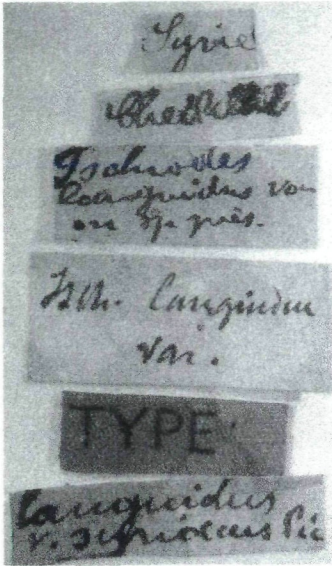 Syrie
Ischnodes
languidus var
ou sp. près.
Isch. languidus
var.
TYPE
languidus
v. syriacus Pic